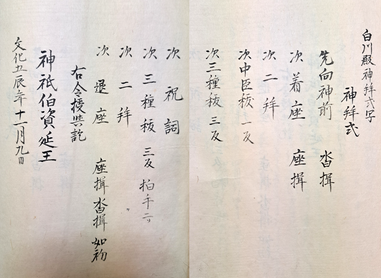 白川殿神拝式写
神拝式
先向神前 沓揖
次着座 座揖
次二拝
次中臣祓 一反
次三種祓 三反
次祝詞
次三種祓 三反 拍手二
次二拝
次退座 座揖沓揖 如初
右令授与訖
神祇伯資延王
文化五辰年十一月九日